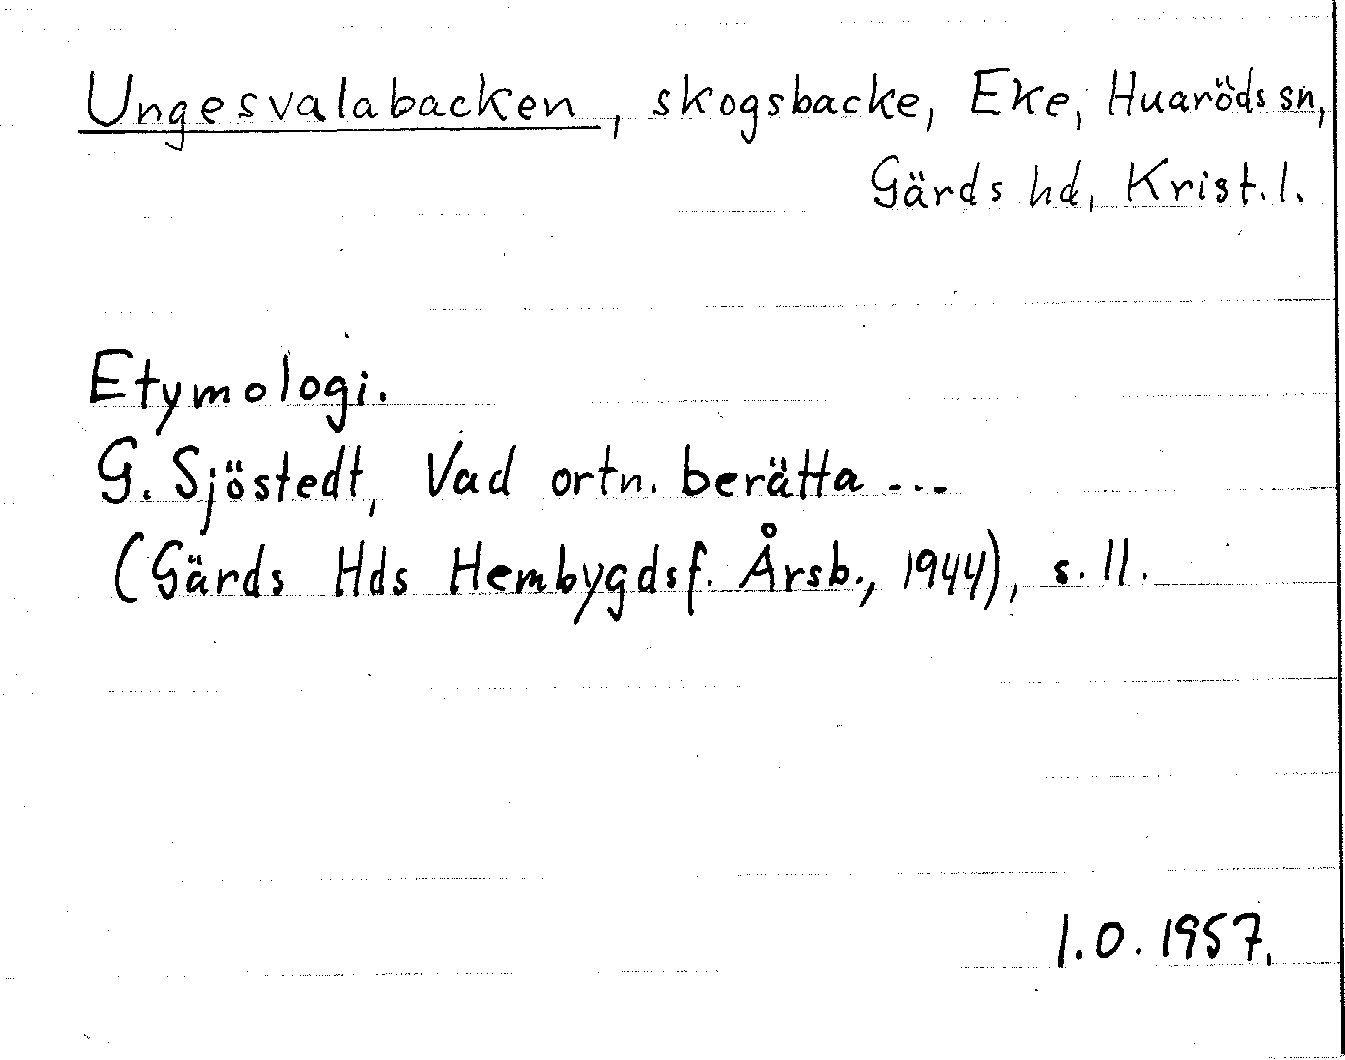 Ungesvalabacken, skogsbacke, Eke, Huaröds sn,
Gärds hd, Krist. l.
Etymologi.
G. Sjöstedt, Vad ortn. berätta ...
(Gärds Hds Hembygdsf. Årsb., 1944), s. 11.
I.O. 1957.